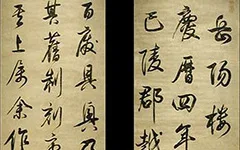 岳陽樓
慶曆四年
巳陵郡越
百廢具具乃
其舊制刻
于上屬余作